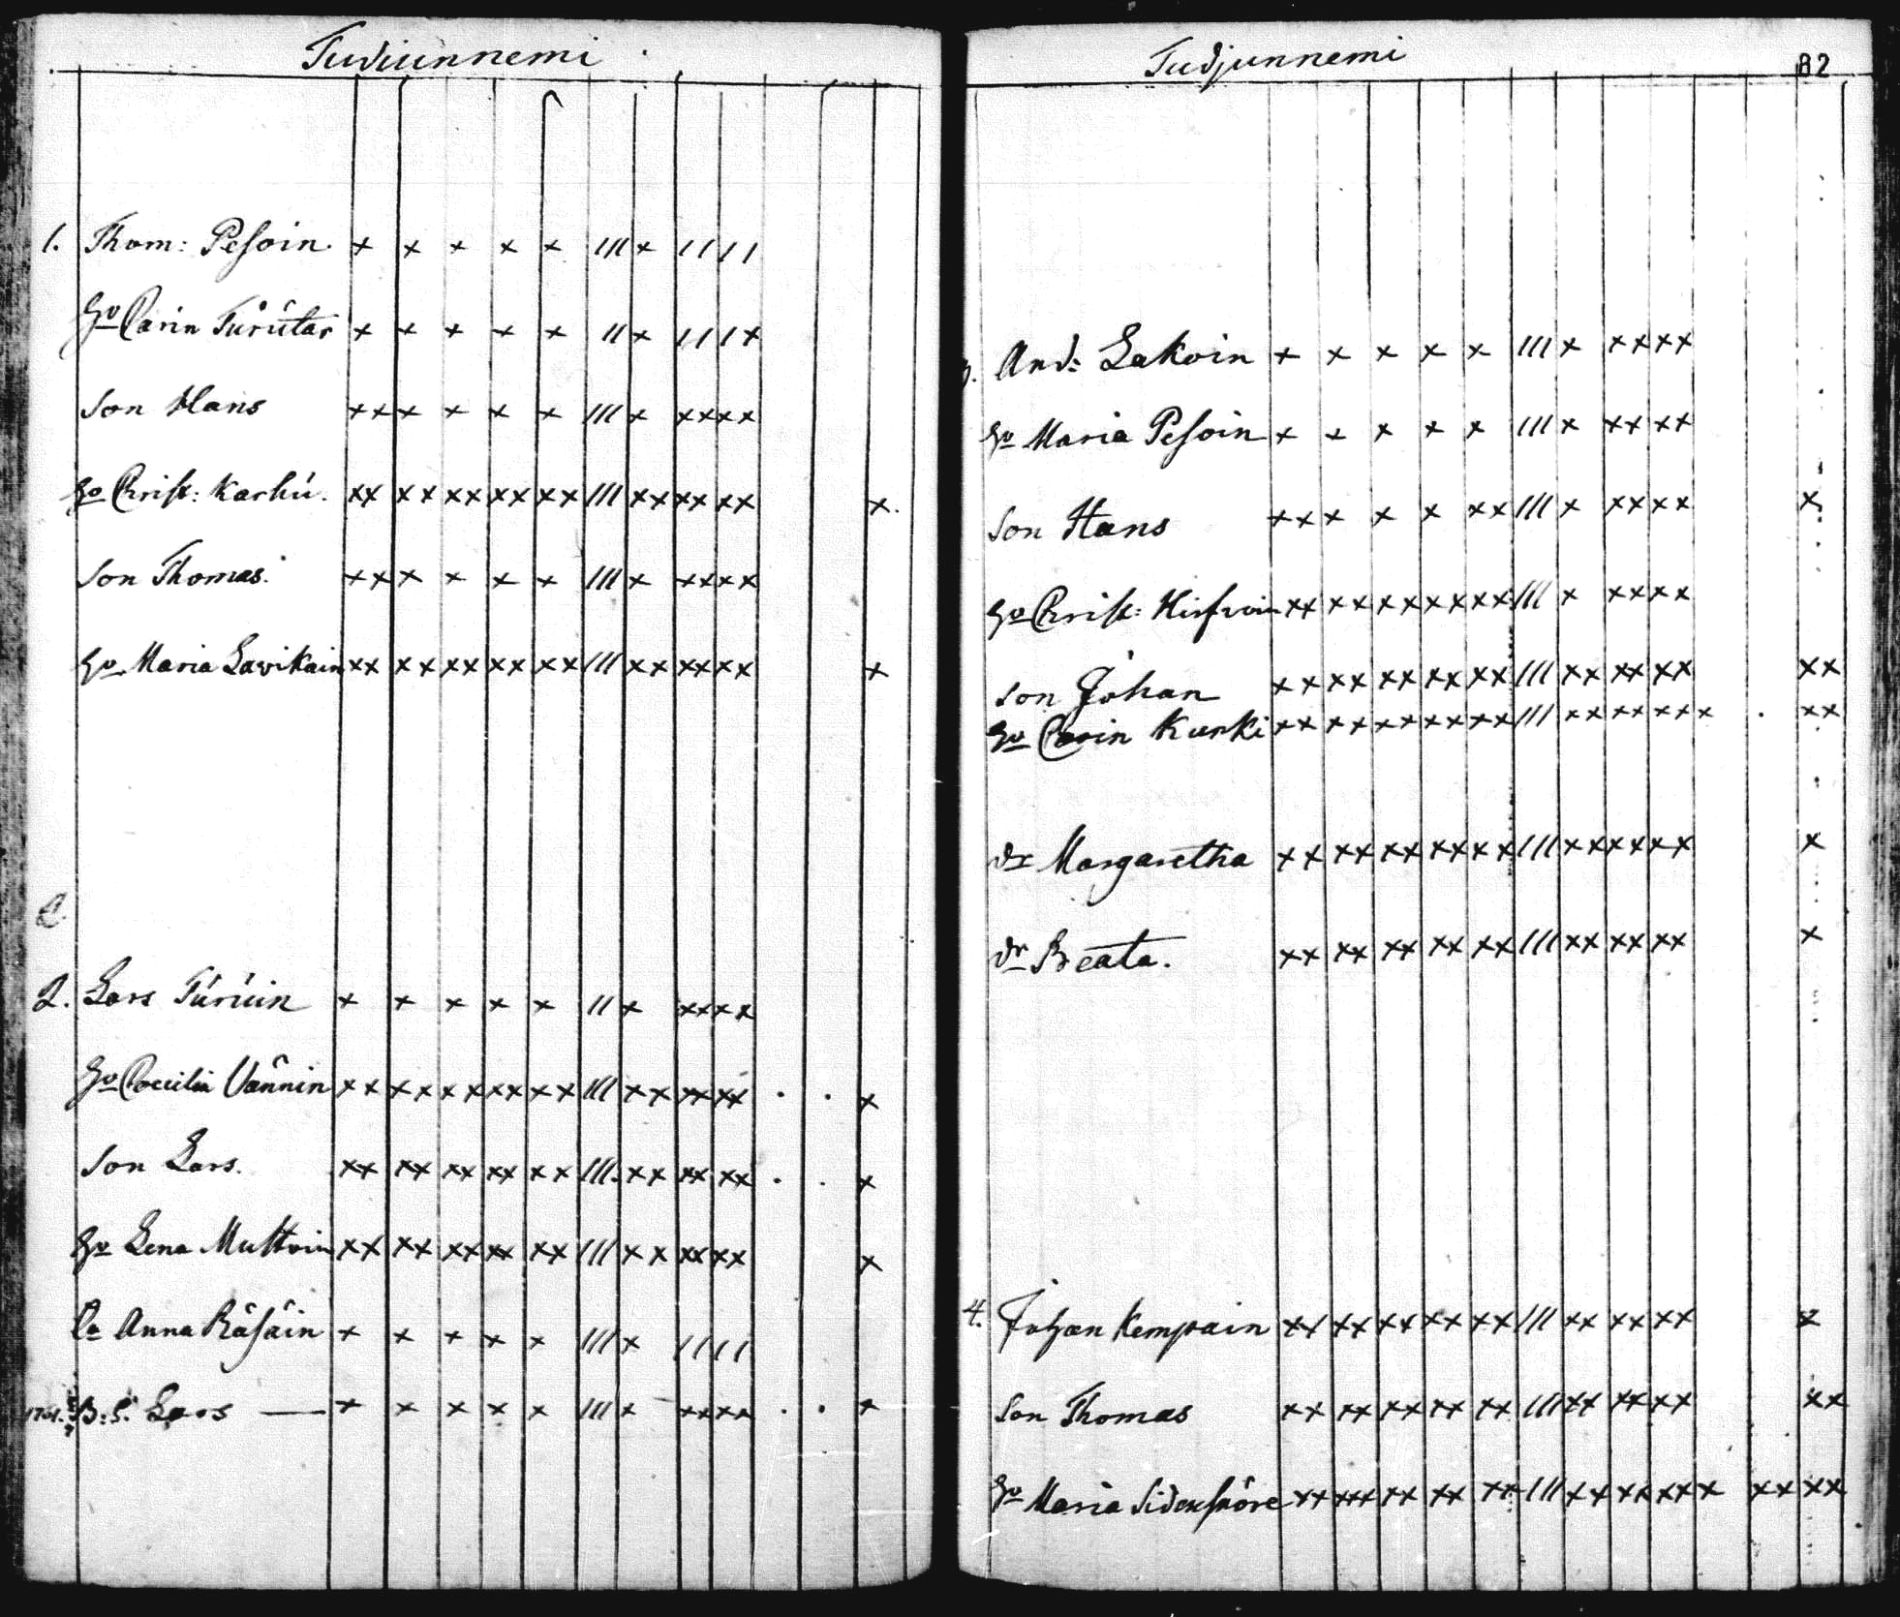 Tudiunnemi
1. Thom: Pesoin. x x x x x /// x / / / /
hu Carin Turútar x x x x x // x / / / x
Son Hans xx x x x x /// x xx xx
hu Christ: Karhú. xx xx xx xx xx /// xx xx xx x.
Son Thomas. xx x x x x /// x xx xx
hu Maria Lavikain xx xx xx xx xx /// xx xx xx x
2.
2. Lars Túrúin x x x x x // x xx xx
hu Cæcilia Vännin xx xx xx xx xx /// xx xx xx . . x
Son Lars. xx xx xx xx xx /// xx xx xx . . x
hu Lena Multoin xx xx xx xx xx /// xx xx xx x
Anna Räsäin x x x x x /// x / / / /
B: S: Lars — x x x x x /// x xx xx . . x
Tudjunnemi
82
And: Lakoin x x x x x /// x xx xx
hu Maria Pesoin x x x x x /// x xx xx
Son Hans xx x x x xx /// x xx xx x
hu Christ: Hirfvoin xx xx xx xx xx /// x xx xx
Son Johan xx xx xx xx xx /// xx xx xx xx
hu Carin Kurki xx xx xx xx xx /// xx xx xxx . xx
dr Margaretha xx xx xx xx xx /// xx xx xx x
dr Beata. xx xx xx xx xx /// xx xx xx x
4. Johan Kempain xx xx xx xx xx /// xx xx xx
Son Thomas xx xx xx xx xx /// xx xx xx xx
hu Maria Sidensnöre xx xxx xx xx xx /// xx xx xxx xx xx